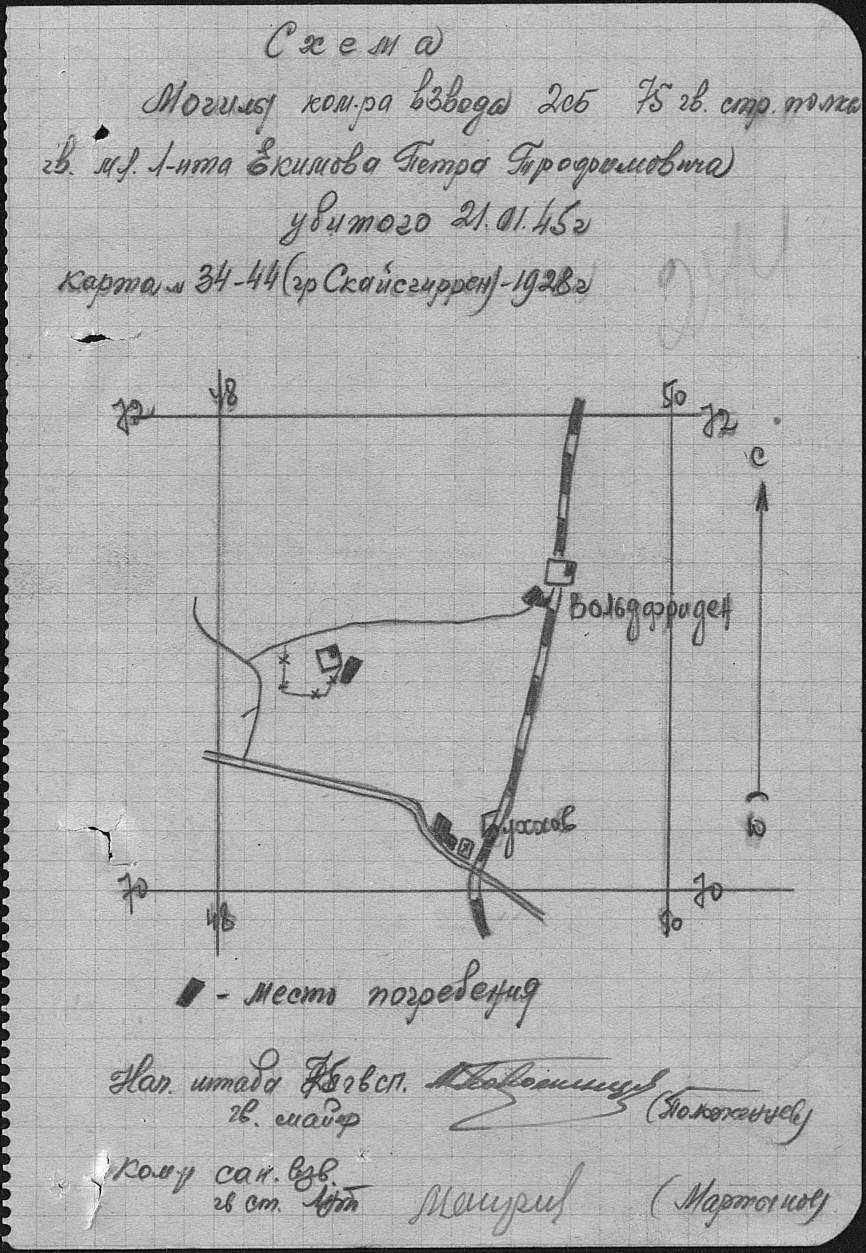 Схема
Могилы ком-ра взвода 2сб 75 гв. стр. полка
гв. мл. л-нта Екимова Петра Трофимовича
убитого 21.01.45г
карта м 34-44 (гр Скайсгиррен)-1928г
48 50
72 72
С
Вольдфриден
Ю
70 70
48 50
- место погребения
Нач. штаба 75 гвсп.
гв. майор (Положенцев)
Ком-р сан. взв.
гв ст. л-нт (Мартынов)